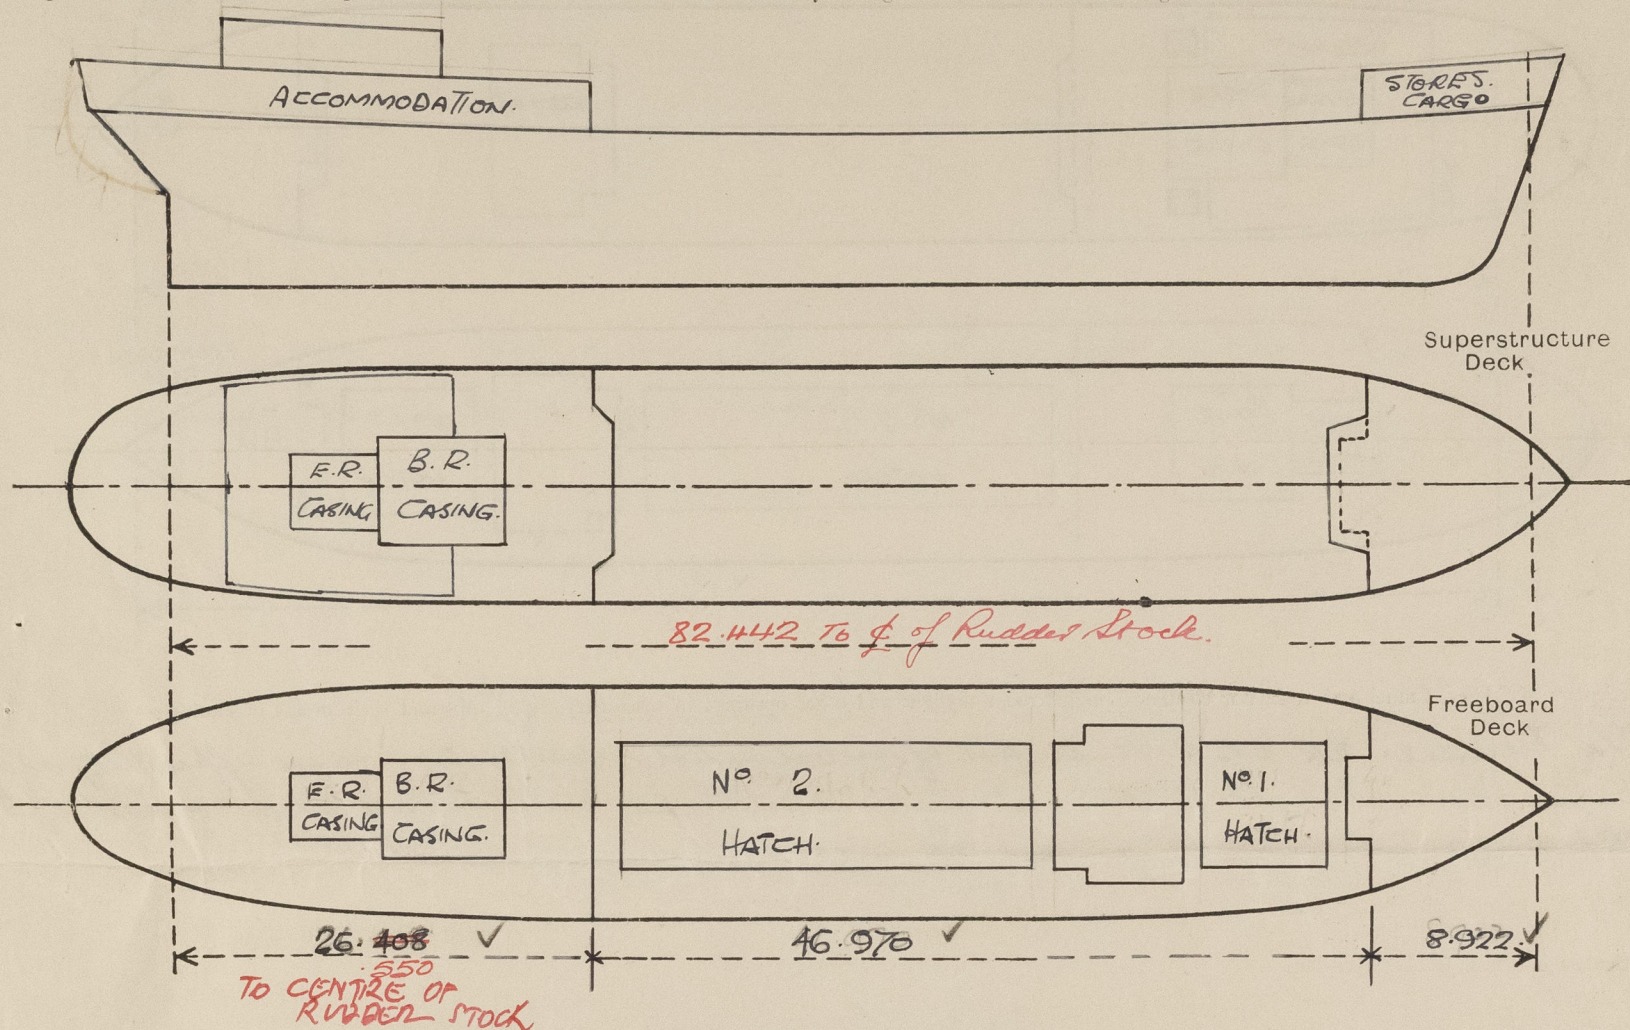 ACCOMMODATION.
STORES.
CARGO
Superstructure
Deck.
E.R. B.R.
CASING CASING.
82.442 To ℄ of Rudder Stock.
Freeboard
Deck
E.R. B.R.
CASING CASING.
No. 2.
HATCH.
No. 1.
HATCH.
26.408 46.970 8.922
.550
TO CENTRE OF
RUDDER STOCK